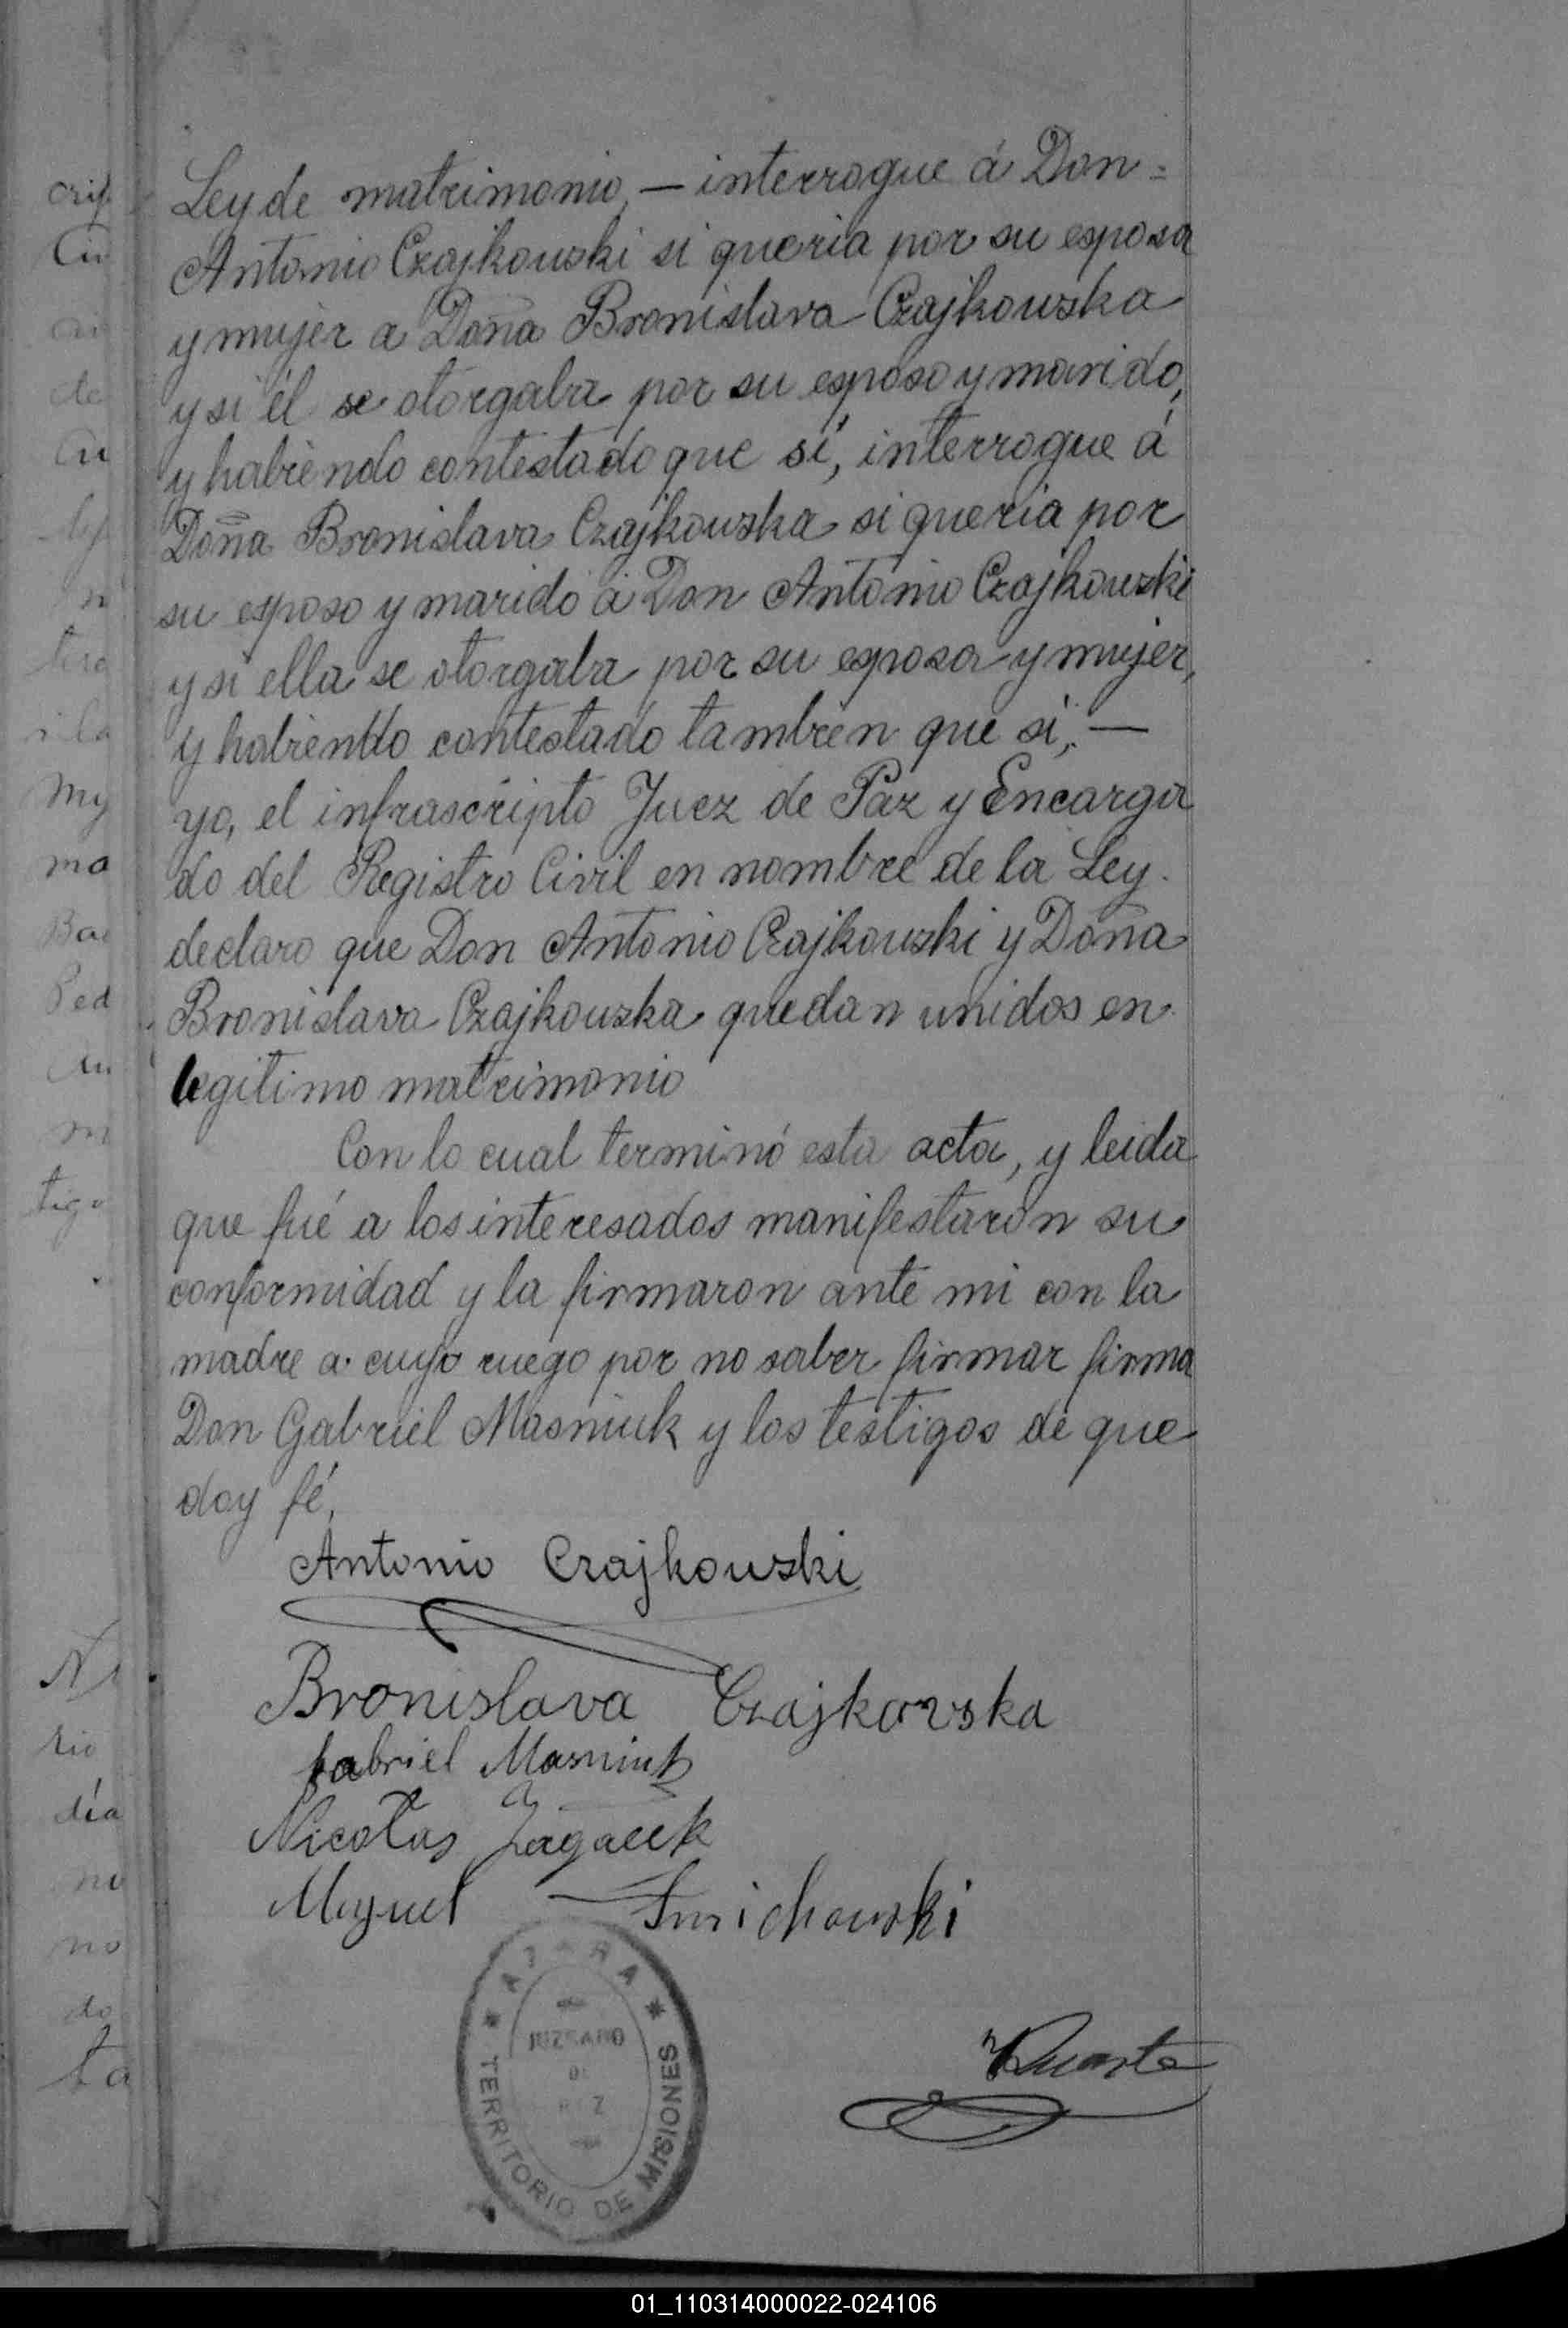 Ley de matrimonio, — interrogue á Don =
Antonio Czajkouski si queria por su esposa
y mujer a Doña Bronislava Czajkouska
y si él se otorgaba por su esposo y marido,
y habiendo contestado que sí, interrogue á
Doña Bronislava Czajkouska si queria por
su esposo y marido á Don Antonio Czajkouski
y si ella se otorgaba por su esposa y mujer,
y habiendo contestado tambien que si, —
yo, el infrascripto Juez de Paz y Encarga
do del Registro Civil en nombre de la Ley.
declaro que Don Antonio Czajkouski y Doña
Bronislava Czajkouska quedan unidos en
legitimo matrimonio
Con lo cual terminó esta acta, y leida
que fué a los interesados manifestaron su
conformidad y la firmaron ante mi con la
madre a cuyo ruego por no saber firmar firma
Don Gabriel Masniuk y los testigos de que
doy fé,
Antonio Czajkouski
Bronislava Czajkovska
Gabriel Masniuk
Nicolas
Miguel
Duarte
* AZARA *
JUZGADO
DE
PAZ
TERRITORIO DE MISIONES
01_110314000022-024106